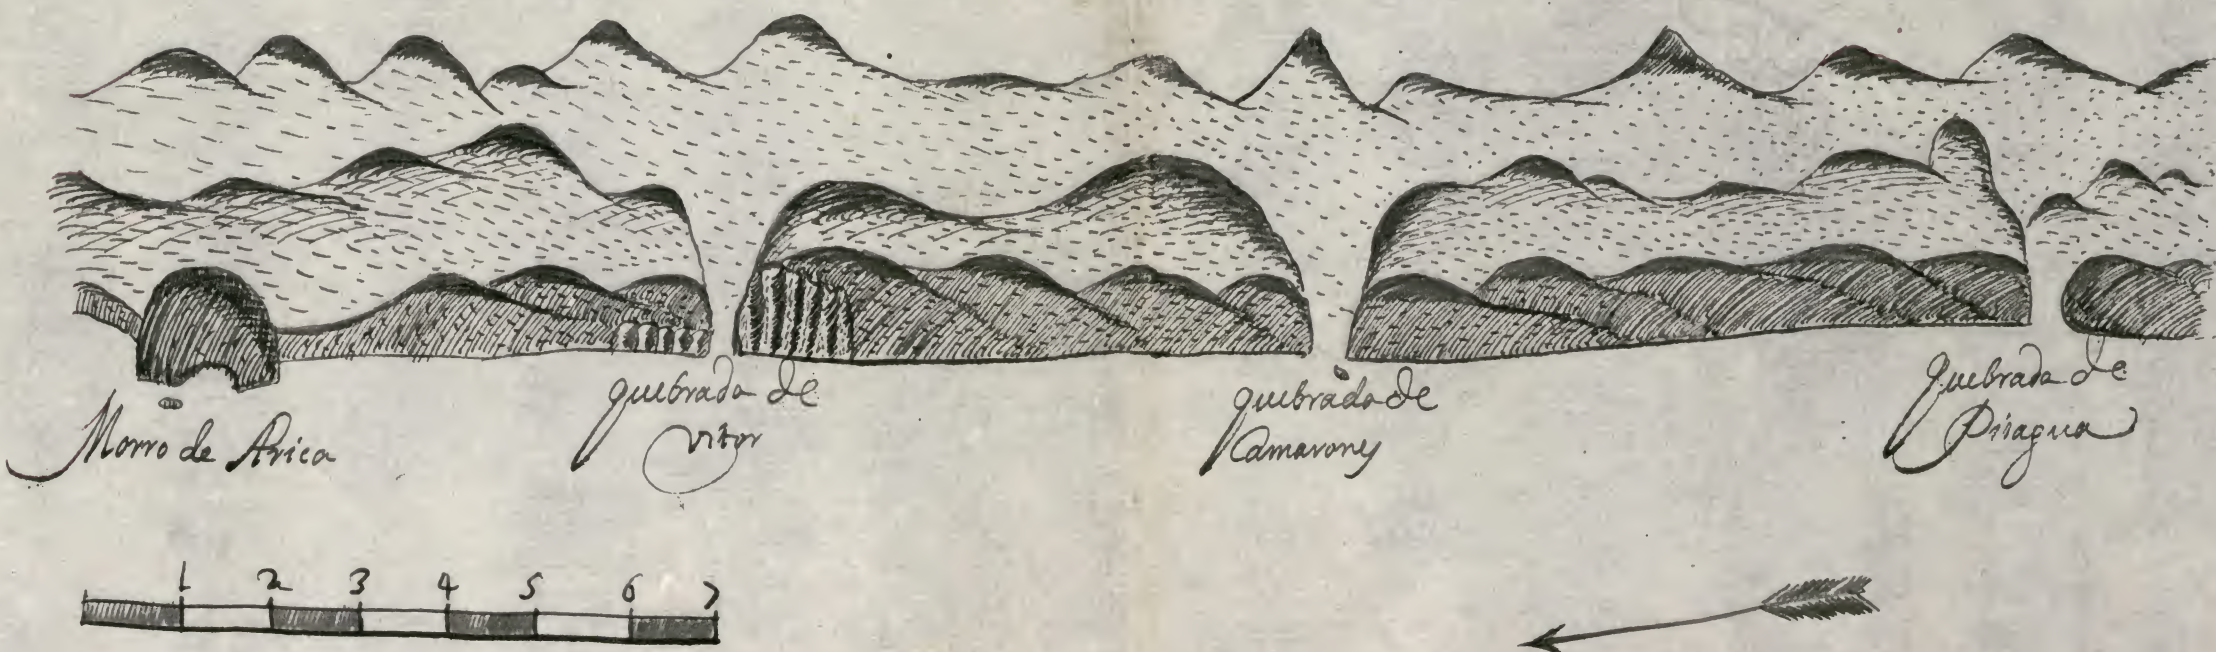 Morro de Arica
quebrada de
vitor
quebrada de
Camarones
Quebrada de
Pisagua
1 2 3 4 5 6 7